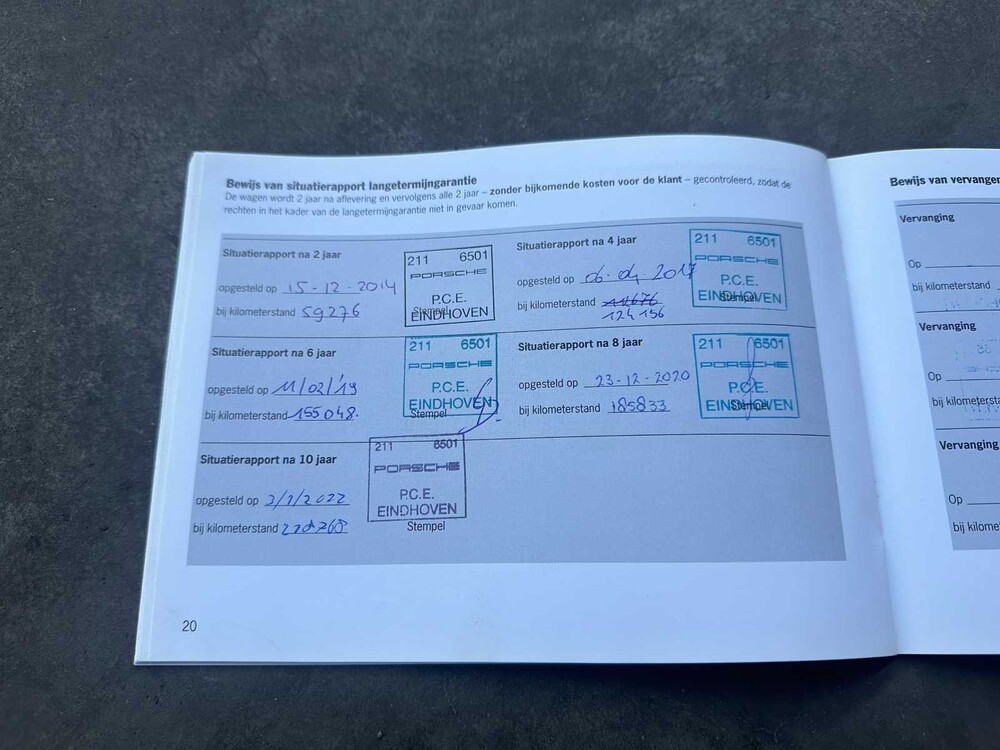 Bewijs van situatierapport langetermijngarantie
De wagen wordt 2 jaar na aflevering en vervolgens alle 2 jaar – zonder bijkomende kosten voor de klant – gecontroleerd, zodat de
rechten in het kader van de langetermijngarantie niet in gevaar komen.
Situatierapport na 2 jaar
opgesteld op 15-12-2014
bij kilometerstand 59276
211 6501
PORSCHE
P.C.E.
EINDHOVEN
Stempel
Situatierapport na 4 jaar
opgesteld op 06-04-2017
bij kilometerstand
124156
211 6501
PORSCHE
P.C.E.
EINDHOVEN
Stempel
Situatierapport na 6 jaar
opgesteld op 11/02/'19
bij kilometerstand 155048.
211 6501
PORSCHE
P.C.E.
EINDHOVEN
Stempel
Situatierapport na 8 jaar
opgesteld op 23-12-2020
bij kilometerstand 185833
211 6501
PORSCHE
P.C.E.
EINDHOVEN
Stempel
Situatierapport na 10 jaar
opgesteld op 3/1/2022
bij kilometerstand
211 6501
PORSCHE
P.C.E.
EINDHOVEN
Stempel
20
Bewijs van
Vervanging
Op
bij kilometerstand
Vervanging
Op
Vervanging
Op